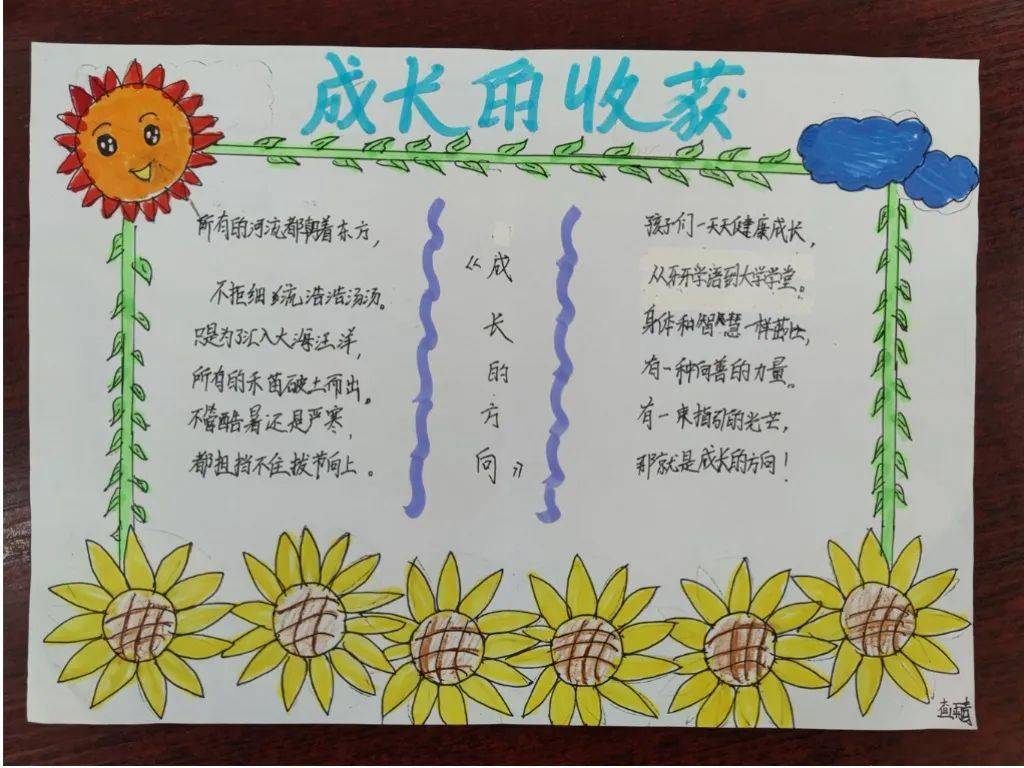 成长的收获
所有的河流都朝着东方，
不拒细流，浩浩汤汤。
只是为了汇入大海汪洋，
所有的禾苗破土而出。
不管酷暑还是严寒，
都阻挡不住拔节向上。
《成长的方向》
孩子们一天天健康成长，
从牙牙学语到大学学堂。
身体和智慧一样茁壮，
有一种向善的力量。
有一束指引的光芒，
那就是成长的方向！